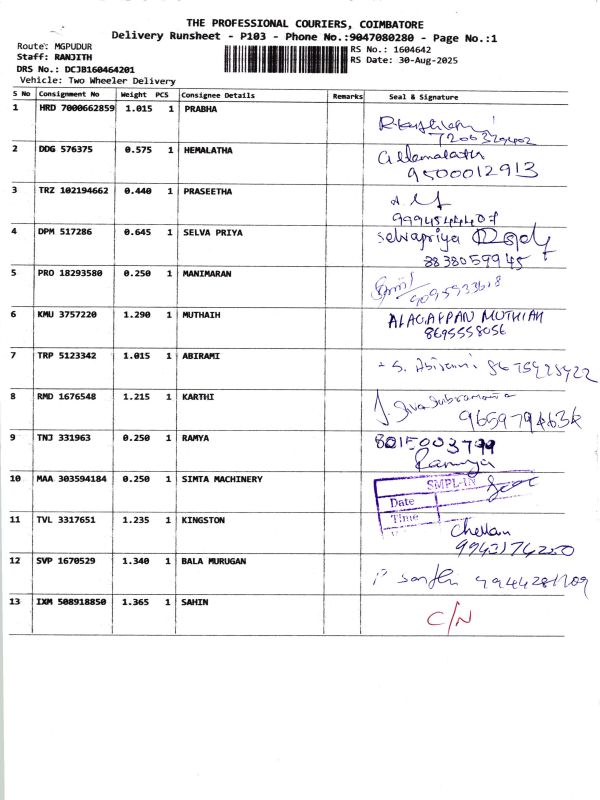 THE PROFESSIONAL COURIERS, COIMBATORE
Delivery Runsheet - P103 - Phone No.:9047080280 - Page No.:1
Route: MGPUDUR
Staff: RANJITH
DRS No.: DCJB160464201
Vehicle: Two Wheeler Delivery
RS No.: 1604642
RS Date: 30-Aug-2025
S No Consignment No Weight PCS Consignee Details Remarks Seal & Signature
1 HRD 7000662859 1.015 1 PRABHA
2 DDG 576375 0.575 1 HEMALATHA Hemalatha
9500012913
3 TRZ 102194662 0.440 1 PRASEETHA
9994544407
4 DPM 517286 0.645 1 SELVA PRIYA Selvapriya
8838059945
5 PRO 18293580 0.250 1 MANIMARAN
6 KMU 3757220 1.290 1 MUTHAIH ALAGAPPAN MUTHIAH
8695558056
7 TRP 5123342 1.015 1 ABIRAMI S. Abirami
8 RMD 1676548 1.215 1 KARTHI J. Siva Subramania
9 TNJ 331963 0.250 1 RAMYA 8015003799
Ramya
10 MAA 303594184 0.250 1 SIMTA MACHINERY SMPL-IN
Date
Time
11 TVL 3317651 1.235 1 KINGSTON Chellam
9943174250
12 SVP 1670529 1.340 1 BALA MURUGAN
13 IXM 508918850 1.365 1 SAHIN C/N